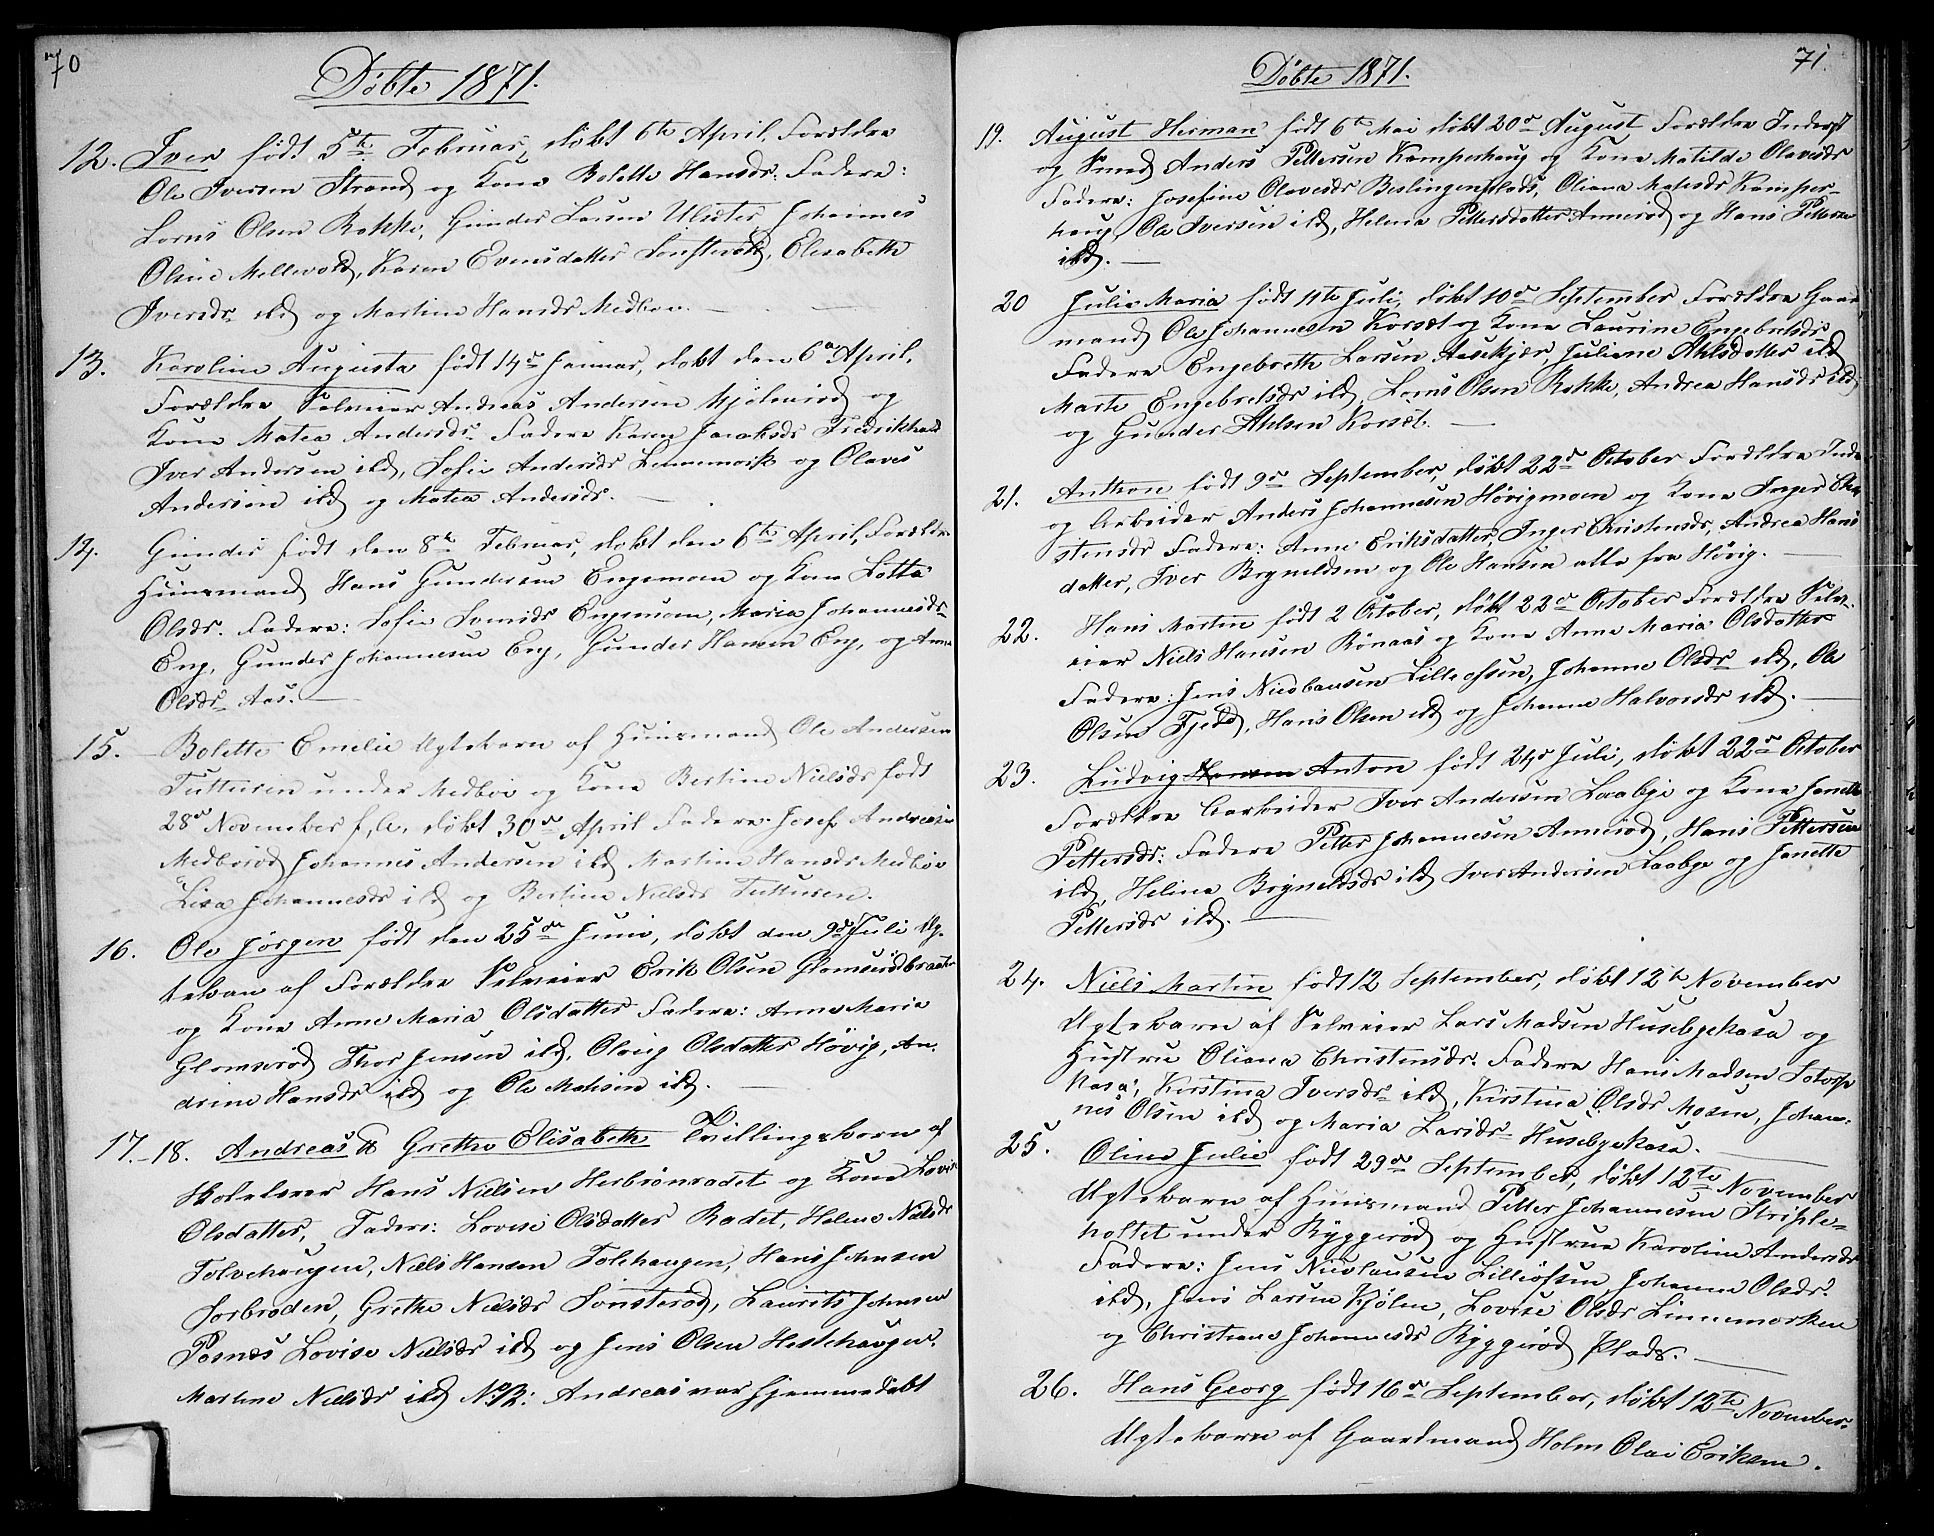 70
Döbte 1871.
12. Iver født 5te Februar, døbt 6te April. Forældre
Ole Iversen Strand og Kone Bolette Hansdr. Fadere:
Lorns Olsen Rokke, Gunder Larsen Ulseter, Johannes
Olsen Mellevold, Karen Evensdatter Sønsterød, Elisabeth
Iversdr. ibd og Martine Hansdr Medbøe. —
13. Karoline Augusta født 14de Januar, døbt den 6te April,
Forældre Selveier Andreas Andersen Mjølnerød og
Kone Matea Andersdr. Fadere Karen Jacobsdr Fredrikhald
Iver Andersen ibd, Sofie Andersdr Linnemork og Olaves
Andersen ibd og Matea Andersdr. —
14. Gunder født den 8de Februar, døbt den 6te April, Forældre
Huusmand Hans Gundersen Engemoen og Kone Lotta
Olsdr. Fadere: Sofie Svensdr Engemoen, Maria Johannesdr
Eng, Gunder Johannesen Eng, Gunder Hansen Eng, og Anne
Olsdr Aas. —
15. Bolette Emelie Ægtebarn af Huusmand Ole Andersen
Tutturen under Medbøe og Kone Bertine Nielsdr født
28de November f. A., døbt 30de April Fadere: Josef Andersen
Medbøe Johannes Andersen ibd Martine Hansdr Medbøe
Lisa Johannesdr ibd og Bertine Nielsdr Tutturen.
16. Ole Jørgen født den 25de Juni, døbt den 9de Juli Æg-
tebarn af Forældre Selveier Erik Olsen Glomserødbraaten
og Kone Anne Maria Olsdatter Fadere: Anne Maria
Glomserød Thor Jensen ibd, Oloug Olsdatter Høvig, An-
drine Hansdr ibd og Ole Matisen ibd. —
17.-18. Andreas & Grethe Elisabeth Tvillingebørn af
Skolelærer Hans Nielsen Herbrønrødet og Kone Lovise
Olsdatter, Fadere: Lovise Olsdatter Rødet, Helene Nielsdr
Tolvehaugen, Niels Hansen Tolehaugen, Hans Johnsen
Sorbrøden, Grethe Nielsdr Sønsterød, Laurits Johnsen
Posnæs Lovise Nielsdr ibd og Jens Olsen Hestehaugen.
Martine Nielsdr ibd NB: Andreas var hjemmedøbt
71.
Döbte 1871.
19. August Herman født 6te Mai døbt 20de August Forældre Inderst
og Smed Anders Pettersen Kamperhaug og Kone Matilde Olavesdr
Fadere: Josefine Olavesdr Berlingenplads, Oliane Matisdr Kamper-
haug, Ole Iversen ibd, Helena Pettersdatter Annerød og Hans Pettersen
ibd. —
20 Julie Maria født 11te Juli, døbt 10de September Forældre Gaard
mand Ole Johannesen Korsæt og Kone Laurine Engebretsdr
Fadere Engebrette Larsen Aasekjær, Juliane Ahlsdatter ibd
Marte Engebretsdr ibd, Lorns Olsen Rokke, Andrea Hansdr ibd
og Gunder Ahlsen Korsæt. —
21. Anthon født 9de September, døbt 22de October Forældre Inderst
og Arbeider Anders Johannesen Høvigmoen og Kone Inger Chri
stensdr Fadere: Anne Eriksdatter, Inger Christensdr, Andrea Hans
datter, Iver Brynildsen og Ole Hansen alle fra Høvig. —
22. Hans Martin født 2 October, døbt 22de October Forældre Selv-
eier Niels Hansen Rønaas og Kone Anne Maria Olsdatter
Fadere: Jens Nicolausen Lilleøssen, Johanne Olsdr ibd, Ole
Olsen Fjeld, Hans Olsen ibd og Johanne Halvorsdr ibd. —
23. Ludvig Anton født 24de Juli, døbt 22de October
Forældre Aarbeider Iver Andersen Laabye og Kone Janette
Pettersdr: Fadere Petter Johannesen Annerød, Hans Pettersen
ibd, Helena Brynildsdr ibd Iver Andersen Laabye og Janette
Pettersdr ibd. —
24. Niels Martin født 12 September, døbt 12te November
Ægtebarn af Selveier Lars Madsen Husebyekasa og
Hustru Oliana Christensdr. Fadere Hans Madsen Sotorp
kasa, Kirstina Iversdr ibd, Kirstina Olsdr Mosen, Johan-
nes Olsen ibd og Maria Larsdr Husebyekasa. —
25. Oline Julie født 29de September, døbt 12te November
Ægtebarn af Huusmand Petter Johannesen Striple-
holtet under Ryggerød og Hustrue Karoline Andersdr
Fadere: Jens Nicolausen Lilleøssen, Johanne Olsdr.
ibd, Jens Larsen Kjølen, Lovise Olsdr Linnemorken
og Christiane Johannesdr Ryggerød Plads. —
26. Hans Georg født 16de September, døbt 12te November.
Ægtebarn af Gaardmand Holm Olai Eriksen.